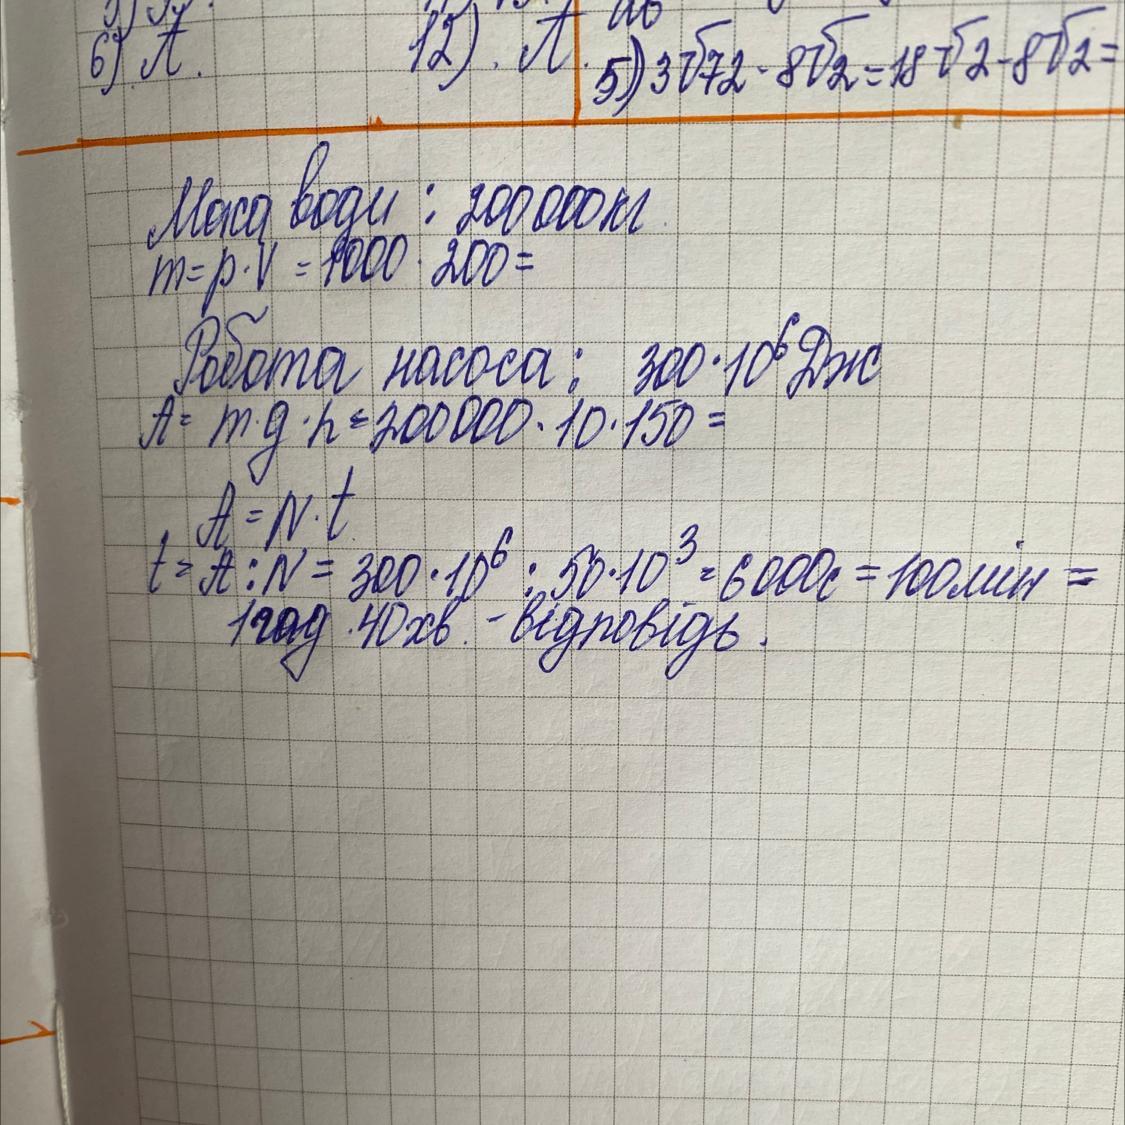 6) А.
12). А.
5) 3√72 - 8√2 = 18√2 - 8√2 =
Маса води : 200 000кг.
m = p·V = 1000 · 200 =
Робота насоса : 300·10⁶ Дж
A = m·g·h = 200 000 · 10 · 150 =
A = N·t
t = A : N = 300·10⁶ : 50·10³ = 6 000с = 100мін =
1год 40хв. - відповідь.